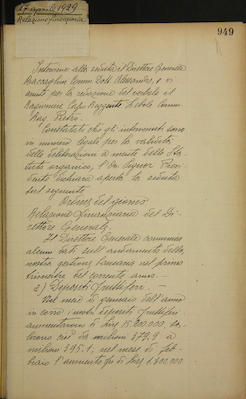 27 aprile 1929
Relazione finanziaria
949
Interviene alla seduta il Direttore Generale
Comm. Dott. Alessandro, e vi
assiste per la redazione del verbale il
Ragioniere Capo Reggente Nobole Comm.
Rag. Pietro.
Constatato che gli intervenuti sono
in numero legale per la validità
delle deliberazioni a mente dello Sta-
tuto organico, il Sig. Signor Presi-
dente dichiara aperta la seduta
sul seguente
Ordine del giorno
Relazione finanziaria del Di-
rettore Generale
Il Direttore Generale comunica
alcuni dati sull'andamento della
nostra gestione bancaria nel primo
trimestre del corrente anno. -
a) Depositi fruttiferi. -
Nel mese di gennaio dell'anno
in corso i nostri depositi fruttiferi
aumentarono di Lire 15.800.000, sa-
lirono cioè da milioni 379.9 a
milioni 395.1; nel mese di feb-
braio l'aumento fu di Lire 1.800.000